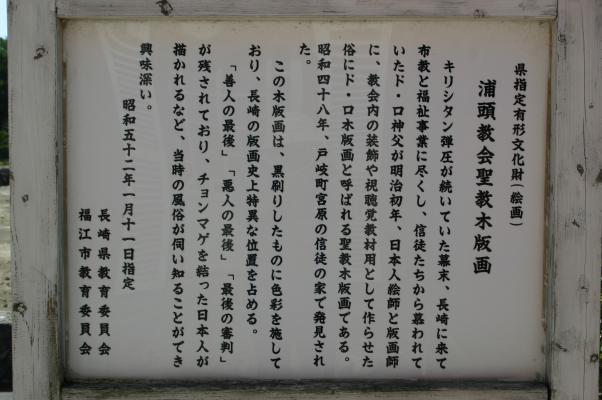 県指定有形文化財(絵画)
浦頭教会聖教木版画
キリシタン弾圧が続いていた幕末、長崎に来て
布教と福祉事業に尽くし、信徒たちから慕われて
いたド・ロ神父が明治初年、日本人絵師と版画師
に、教会内の装飾や視聴覚教材用として作らせた
俗にド・ロ木版画と呼ばれる聖教木版画である。
昭和四十八年、戸岐町宮原の信徒の家で発見され
た。
この木版画は、黒刷りしたものに色彩を施して
おり、長崎の版画史上特異な位置を占める。
「善人の最後」「悪人の最後」「最後の審判」
が残されており、チョンマゲを結った日本人が
描かれるなど、当時の風俗が伺い知ることができ
興味深い。
昭和五十二年一月十一日指定
長崎県教育委員会
福江市教育委員会